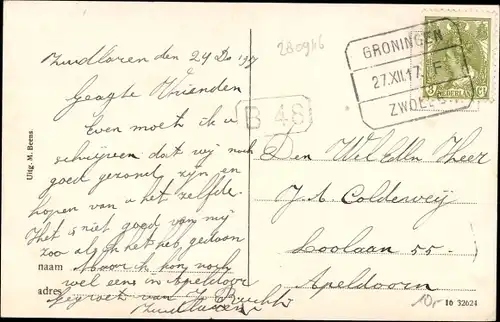 Zuidlaren den 24 De 1917
280916
GRONINGEN
27.XII.17. F
ZWOLLE
3 CT
NEDERLAND
Geagte Vrienden
B 48
Even moet ik u
schrijven dat wij noch
goed gezond zijn en
hopen van u het zelfde.
Het is niet goed van mij
zoo als ik het heb gedaan
naam Maar ik kon noch
wel eens in Apeldoorn
adres
Zuidlaren
Uitg. M. Beens
Den Wel Edln Heer
J. A. Coldeweij
Loolaan 55
Apeldoorn
10r
10 32624